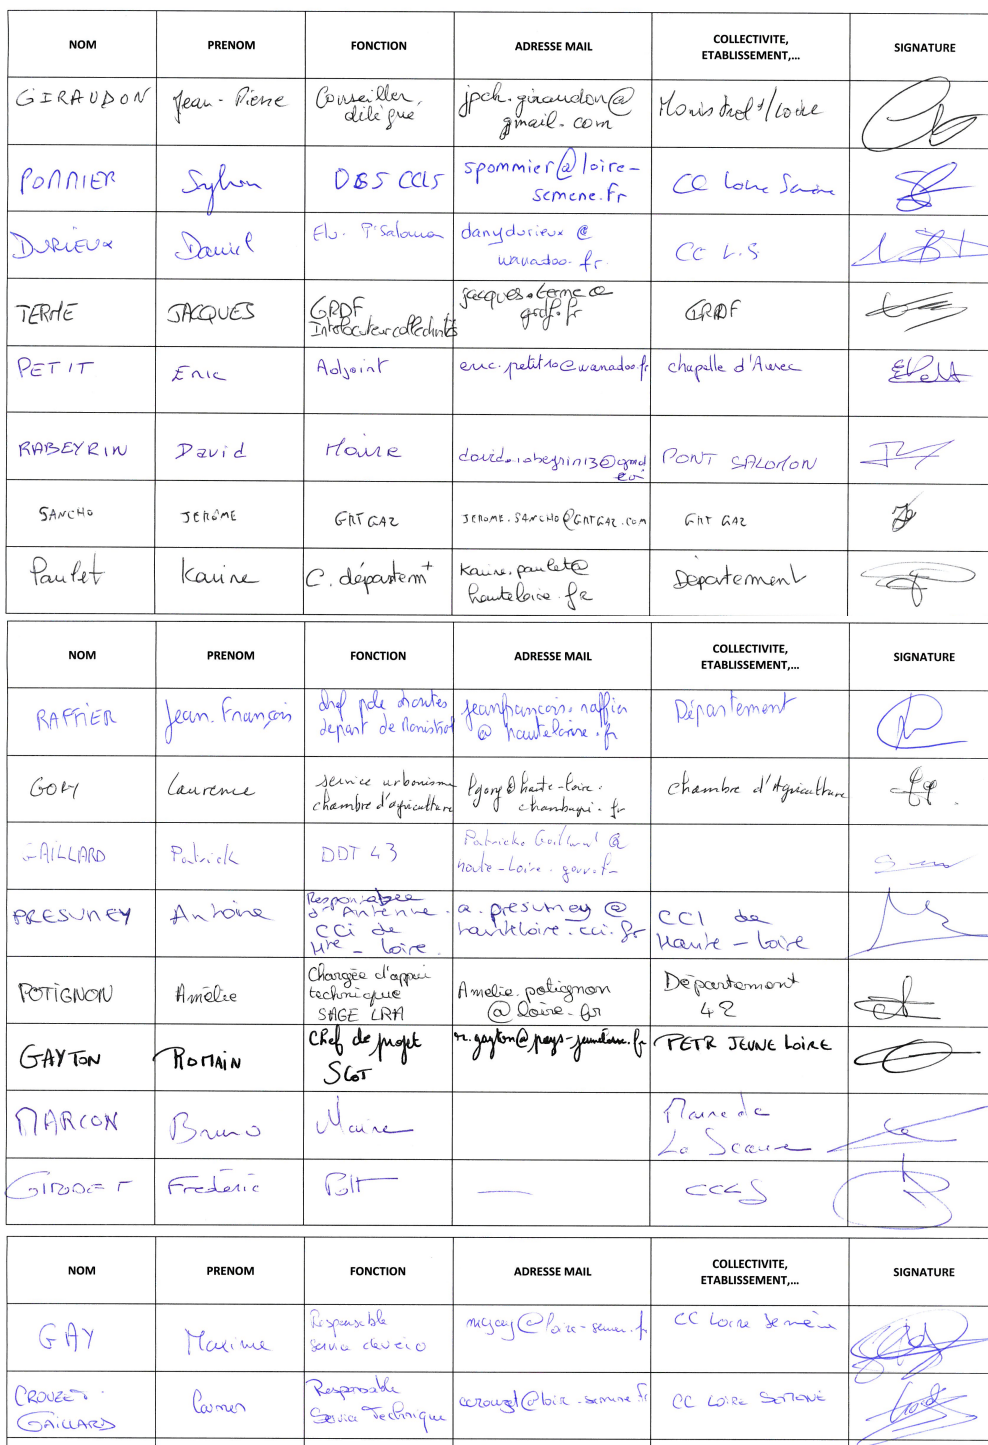 NOM PRENOM FONCTION ADRESSE MAIL COLLECTIVITE, ETABLISSEMENT,... SIGNATURE
GIRAUDON Jean-Pierre Conseiller, délégué jpch.giraudon@gmail.com Monistrol s/Loire
POMMIER Sylvain DGS CCLS spommier@loire-semene.fr CC Loire Semène
DURIEUX Daniel Elu P'Salomon danydurieux@wanadoo.fr. CC L.S
TERME JACQUES GRDF Interlocuteur collectivités jacques.terme@grdf.fr GRDF
PETIT Eric Adjoint eric.petit10@wanadoo.fr chapelle d'Aurec
RABEYRIN David Maire PONT SALOMON
SANCHO JEROME GRT GAZ JEROME.SANCHO@GRTGAZ.COM GRT GAZ
Paulet Karine C. départem+ karine.paulet@hauteloire.fr Département
NOM PRENOM FONCTION ADRESSE MAIL COLLECTIVITE, ETABLISSEMENT,... SIGNATURE
RAFFIER Jean-François chef pole routes depart de Monistrol jeanfrancois.raffier@hauteloire.fr Département
GORY Laurence service urbanisme chambre d'agriculture lgory@haute-loire.chambagri.fr chambre d'Agriculture
GAILLARD Patrick DDT 43 Patrick.Gaillard@haute-loire.gouv.fr
PRESUMEY Antoine Responsable d'Antenne. CCi de Hte-Loire. a.presumey@hauteloire.cci.fr CCI de Haute-Loire
POTIGNON Amélie Chargée d'appui technique SAGE LRA Amelie.potignon@loire.fr Département 42
GAYTON ROMAIN Chef de projet SCoT r.gayton@pays-jeuneloire.fr PETR JEUNE LOIRE
MARCON Bruno Maire Mairie de La Séauve
GIRODET Frédéric Pdt — CCLS
NOM PRENOM FONCTION ADRESSE MAIL COLLECTIVITE, ETABLISSEMENT,... SIGNATURE
GAY Maxime Responsable mgay@loire-semene.fr CC Loire Semène
CROUZET GAILLARD Responsable Service Technique ccrouzet@loire-semene.fr CC LOIRE SEMENE